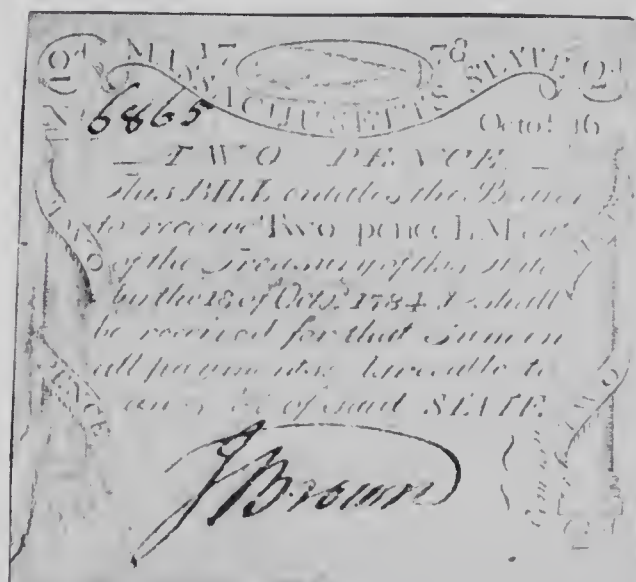 2d 17 78 2d
MASSACHUSETTS STATE
6865 Octo! 16
TWO PENCE
This BILL entitles the Bearer
to receive Two pence L.M out
of the Treasury of this State
by the 18 of Octr 1784 & shall
be received for that Sum in
all payments
of said STATE
TWO
PENCE
TWO
JBrown